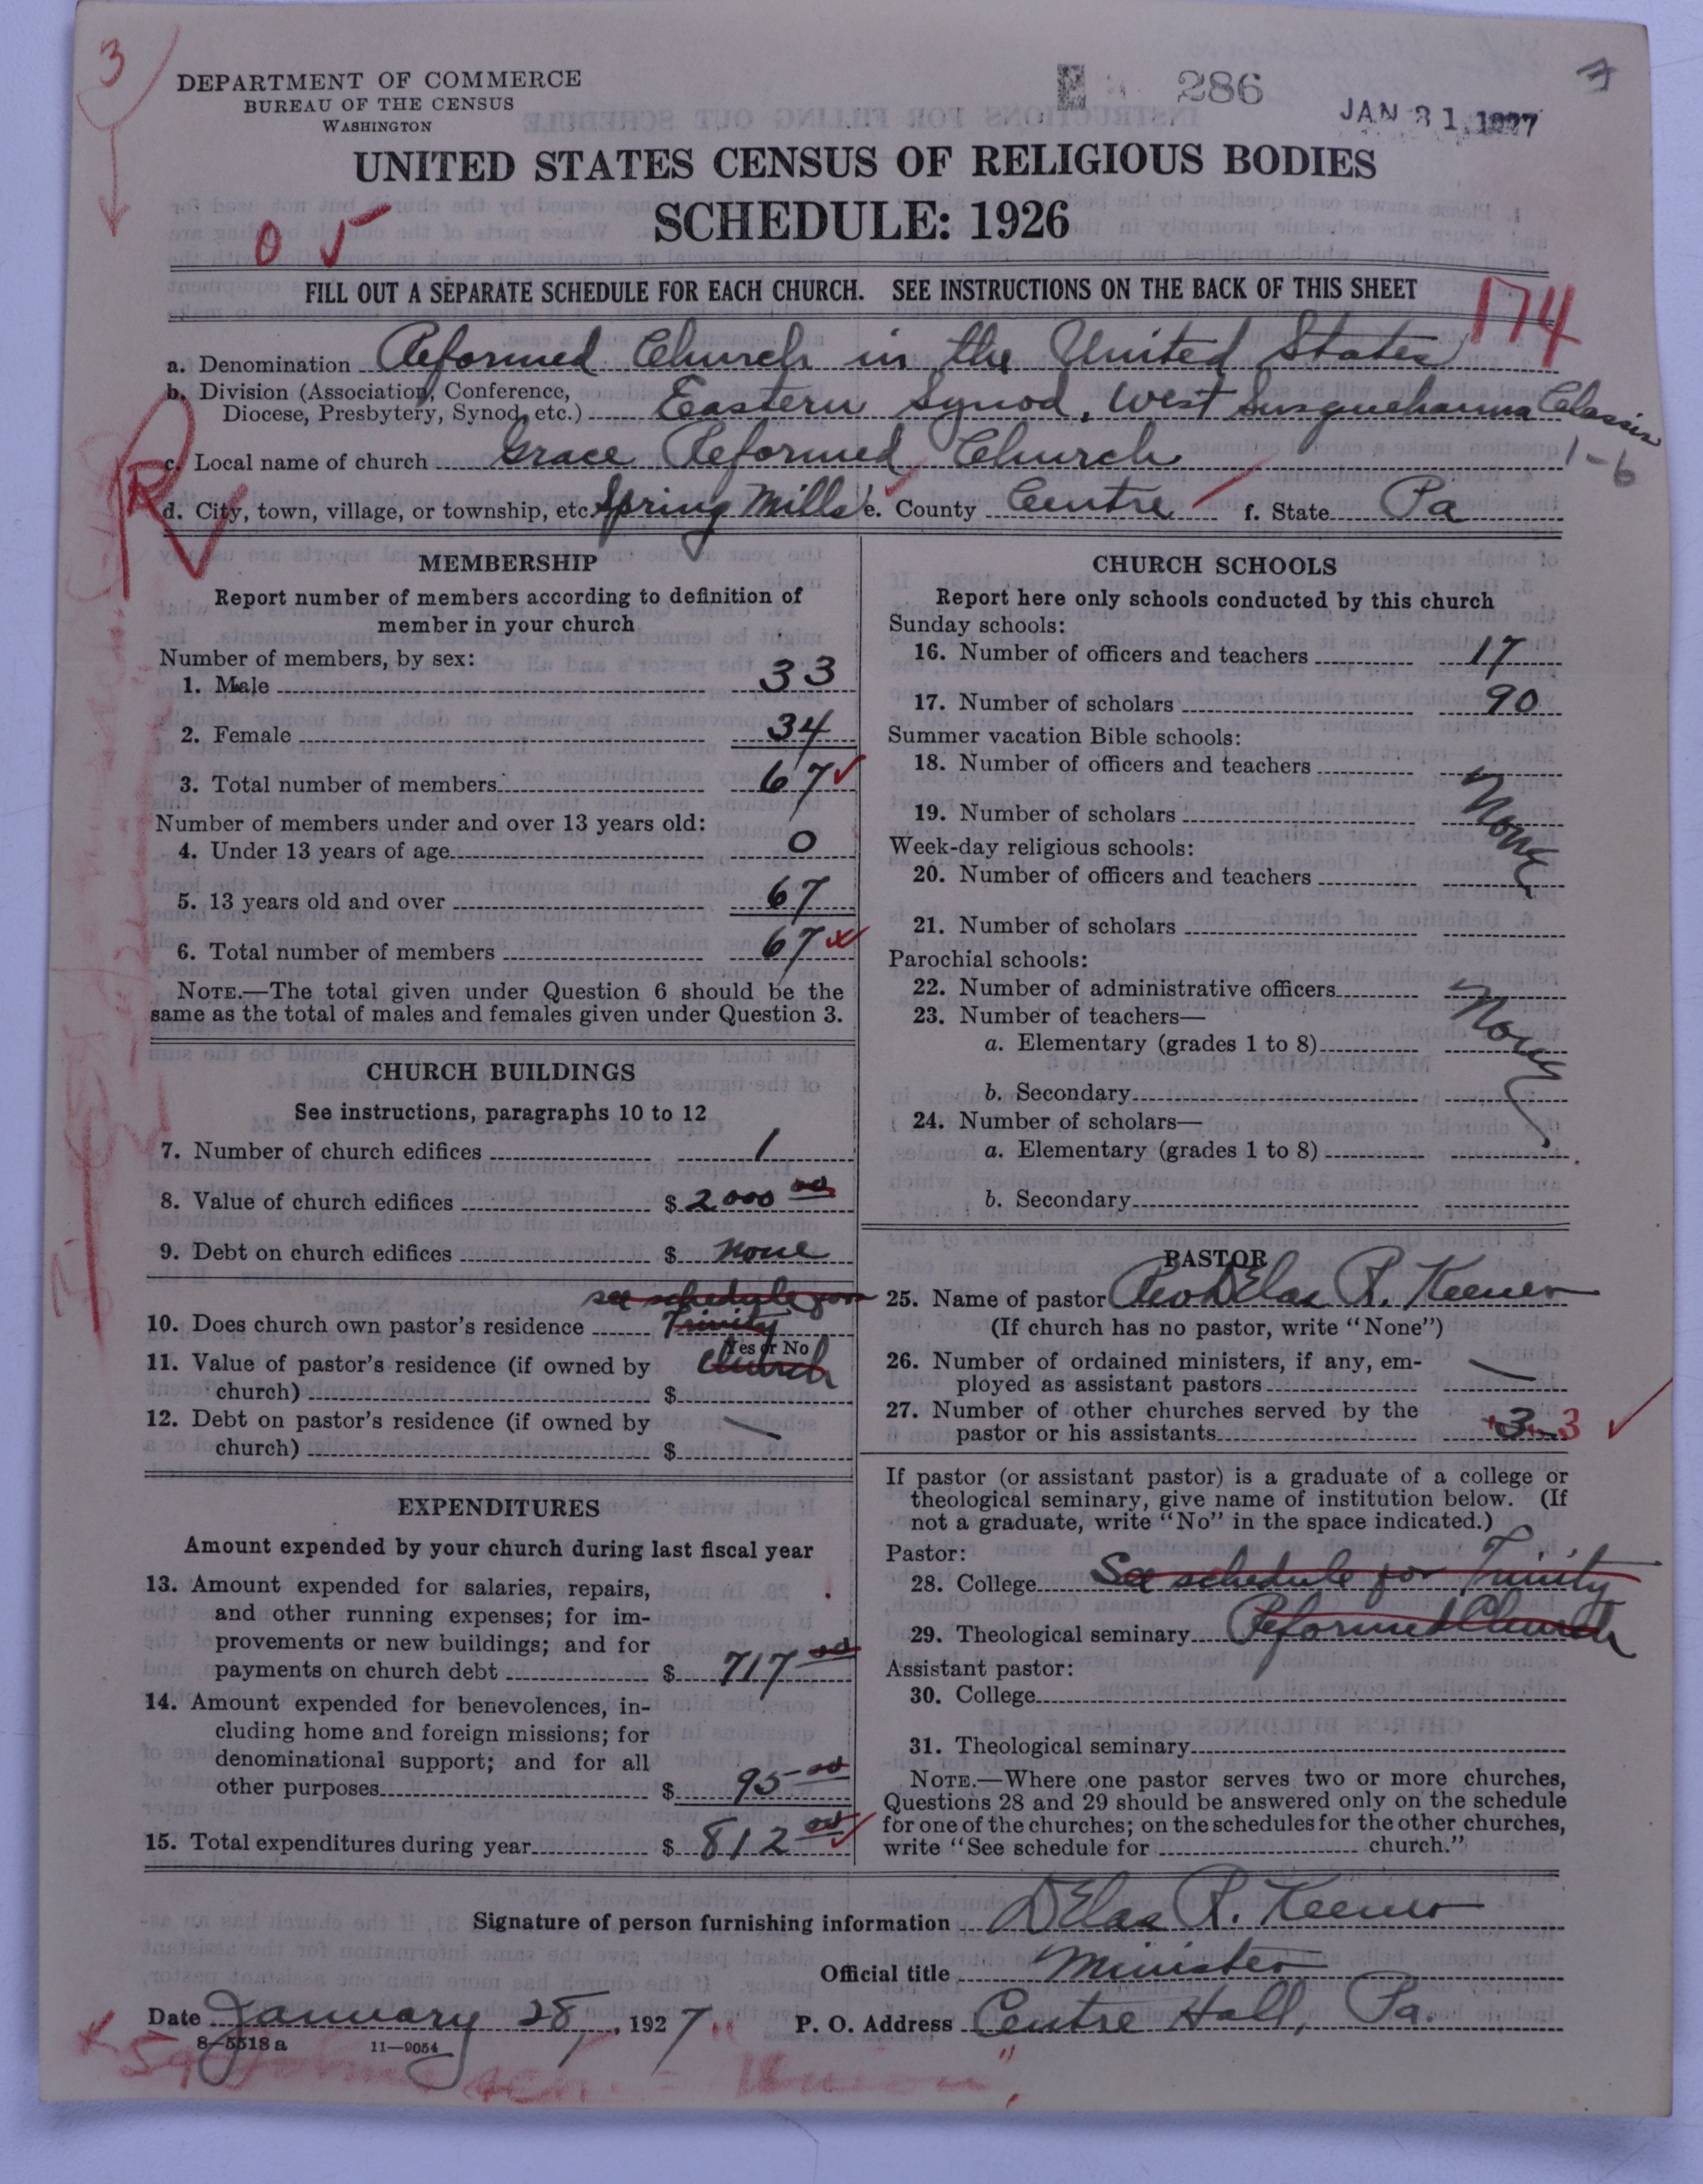 3
DEPARTMENT OF COMMERCE
BUREAU OF THE CENSUS
WASHINGTON
286
JAN 31 1927
7
UNITED STATES CENSUS OF RELIGIOUS BODIES
SCHEDULE: 1926
0 5
FILL OUT A SEPARATE SCHEDULE FOR EACH CHURCH. SEE INSTRUCTIONS ON THE BACK OF THIS SHEET
174
a. Denomination Reformed Church in the United States
b. Division (Association, Conference,
Diocese, Presbytery, Synod, etc.) Eastern Synod, West Susquehanna Classis
c. Local name of church Grace Reformed Church
1-6
R
d. City, town, village, or township, etc. Spring Mills e. County Centre f. State Pa
MEMBERSHIP
Report number of members according to definition of
member in your church
Number of members, by sex:
1. Male 33
2. Female 34
3. Total number of members 67
Number of members under and over 13 years old:
4. Under 13 years of age 0
5. 13 years old and over 67
6. Total number of members 67
NOTE.—The total given under Question 6 should be the
same as the total of males and females given under Question 3.
CHURCH BUILDINGS
See instructions, paragraphs 10 to 12
7. Number of church edifices 1
8. Value of church edifices $ 2000 00
9. Debt on church edifices $ none
see schedule for
10. Does church own pastor's residence Trinity
Yes or No
11. Value of pastor's residence (if owned by Church
church) $
12. Debt on pastor's residence (if owned by —
church) $
EXPENDITURES
Amount expended by your church during last fiscal year
13. Amount expended for salaries, repairs,
and other running expenses; for im-
provements or new buildings; and for
payments on church debt $ 717 00
14. Amount expended for benevolences, in-
cluding home and foreign missions; for
denominational support; and for all
other purposes $ 95 00
15. Total expenditures during year $ 812 00
CHURCH SCHOOLS
Report here only schools conducted by this church
Sunday schools:
16. Number of officers and teachers 17
17. Number of scholars 90
Summer vacation Bible schools:
18. Number of officers and teachers
19. Number of scholars None
Week-day religious schools:
20. Number of officers and teachers
21. Number of scholars
Parochial schools:
22. Number of administrative officers
23. Number of teachers— None
a. Elementary (grades 1 to 8)
b. Secondary
24. Number of scholars—
a. Elementary (grades 1 to 8)
b. Secondary
PASTOR
25. Name of pastor Rev Delas R. Keener
(If church has no pastor, write "None")
26. Number of ordained ministers, if any, em-
ployed as assistant pastors —
27. Number of other churches served by the
pastor or his assistants 3 3
If pastor (or assistant pastor) is a graduate of a college or
theological seminary, give name of institution below. (If
not a graduate, write "No" in the space indicated.)
Pastor:
28. College See schedule for Trinity
29. Theological seminary Reformed Church
Assistant pastor:
30. College
31. Theological seminary
NOTE.—Where one pastor serves two or more churches,
Questions 28 and 29 should be answered only on the schedule
for one of the churches; on the schedules for the other churches,
write "See schedule for church."
Signature of person furnishing information Delas R. Keener
Official title Minister
Date January 28, 1927 P. O. Address Centre Hall, Pa.
8—5518 a 11—9054